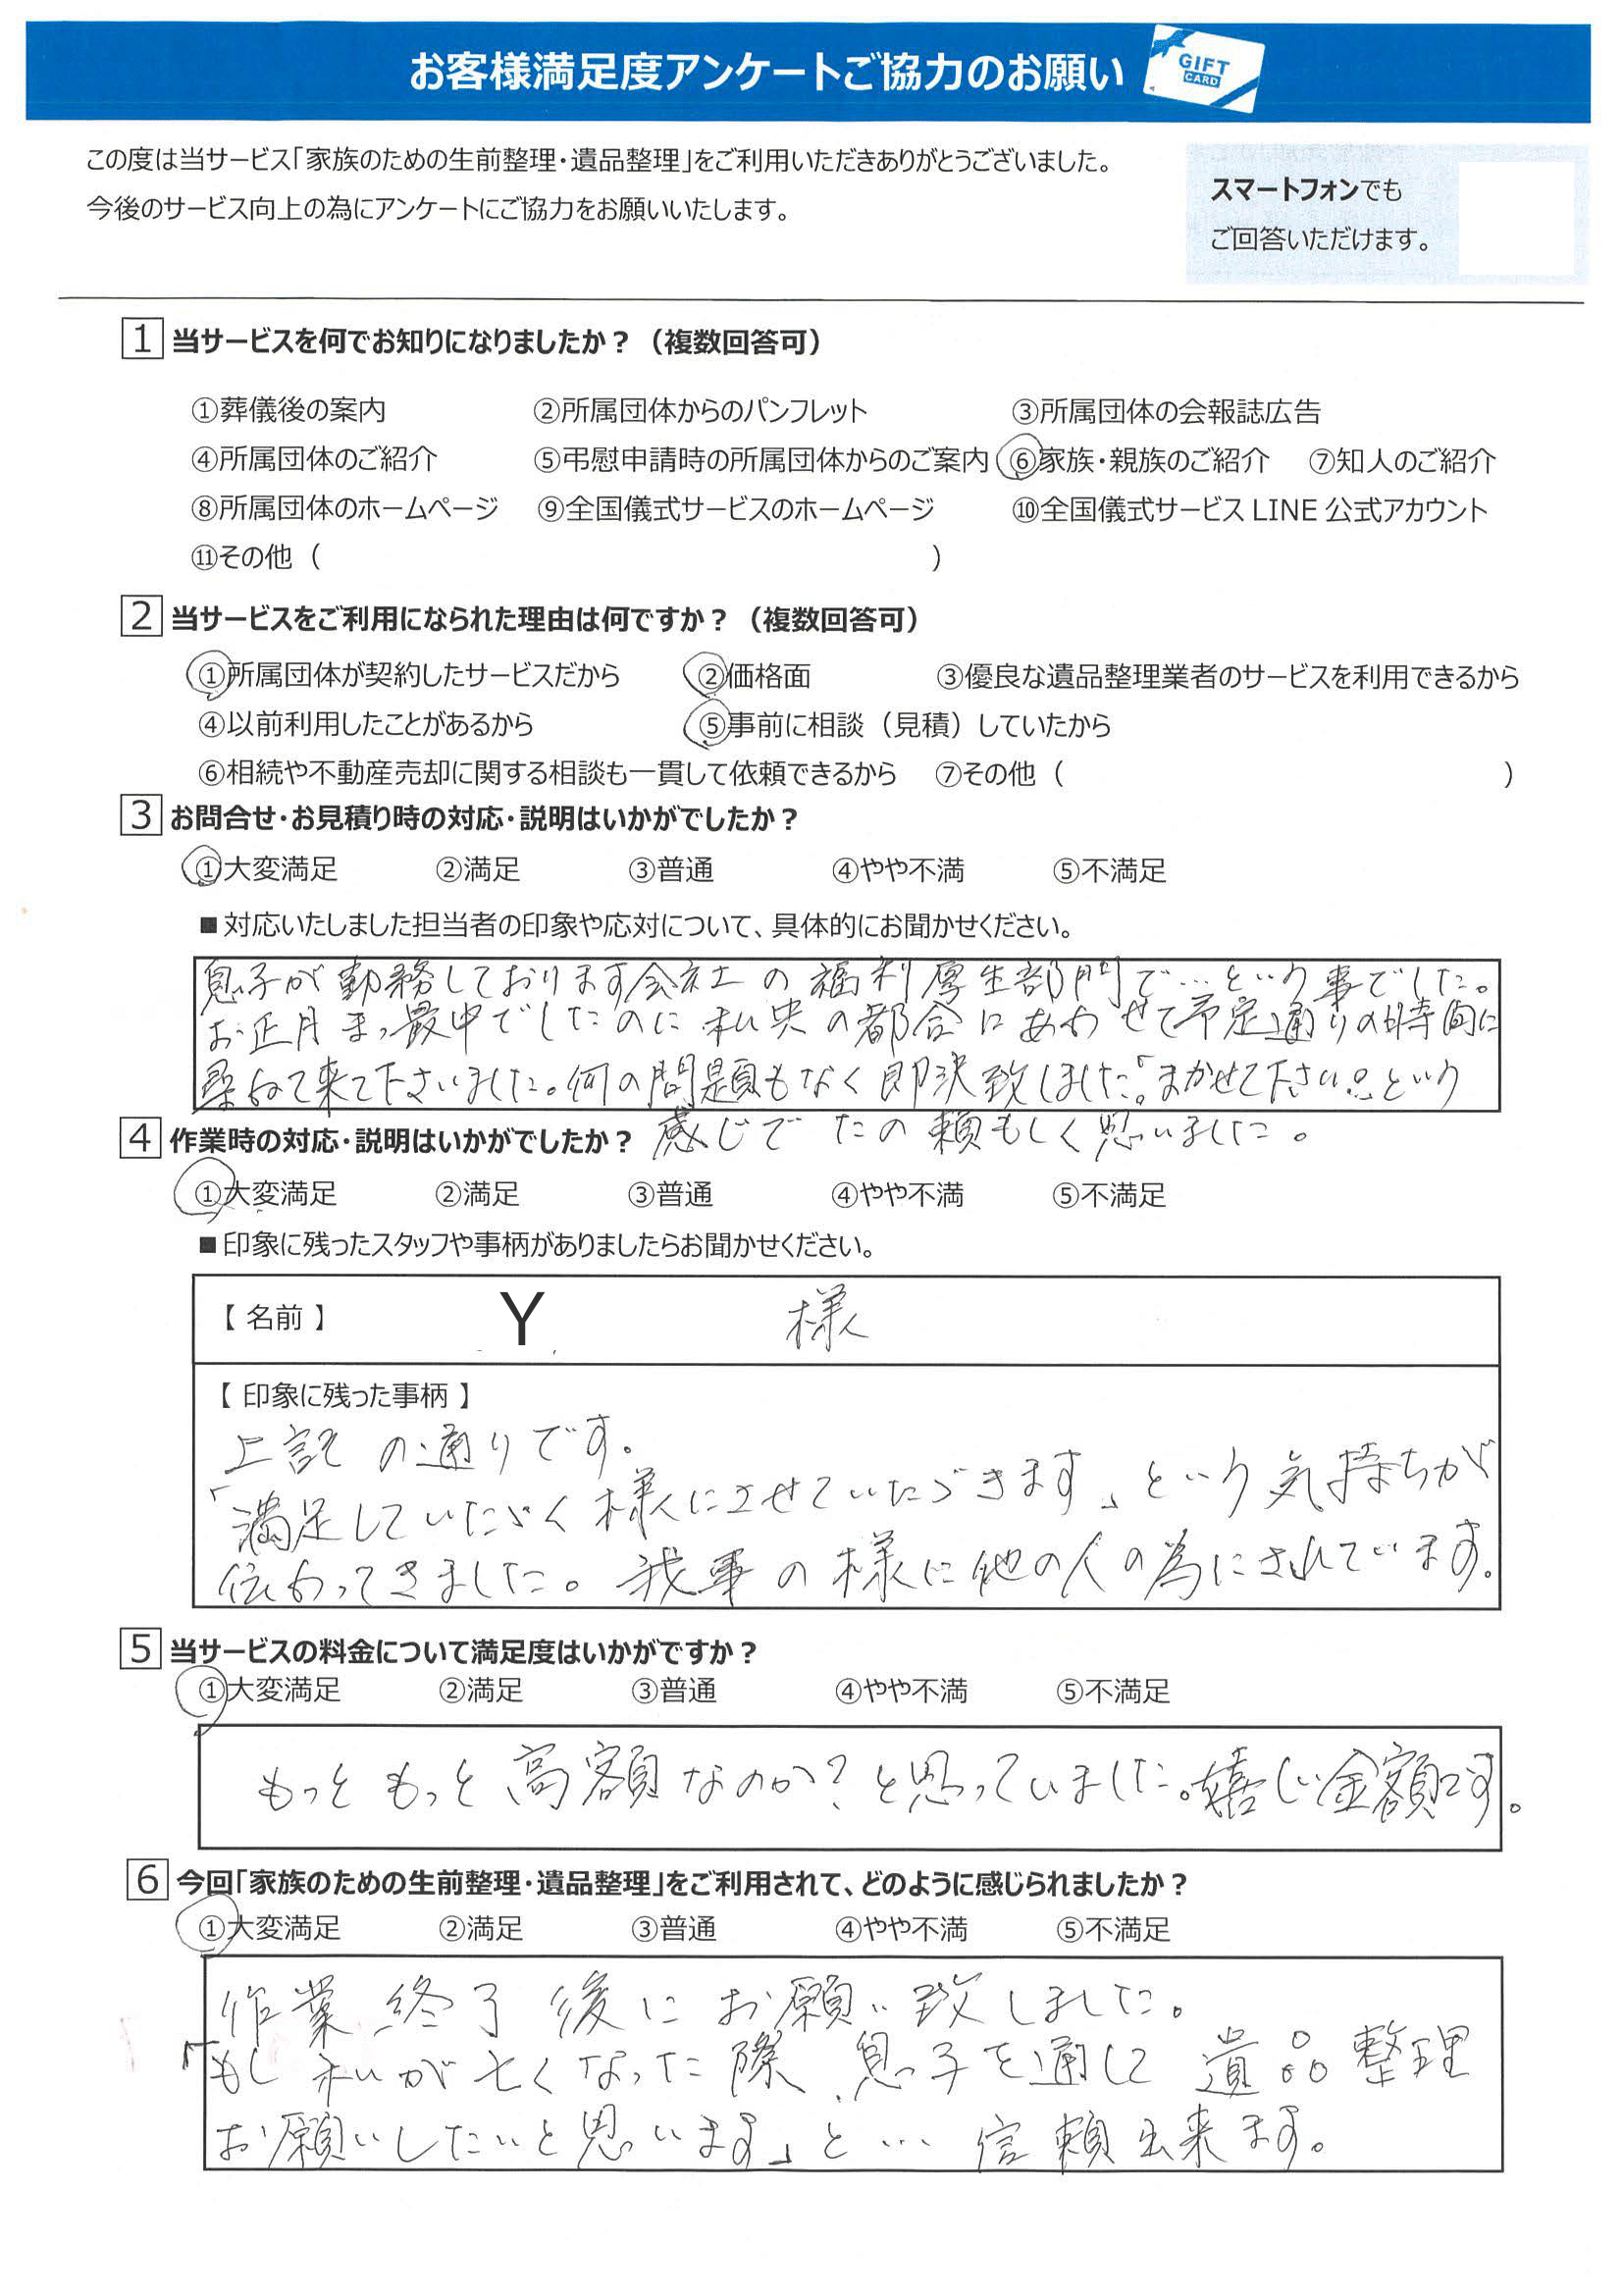 お客様満足度アンケートご協力のお願い
GIFT
CARD
この度は当サービス「家族のための生前整理・遺品整理」をご利用いただきありがとうございました。
今後のサービス向上の為にアンケートにご協力をお願いいたします。
スマートフォンでも
ご回答いただけます。
1 当サービスを何でお知りになりましたか？（複数回答可）
①葬儀後の案内 ②所属団体からのパンフレット ③所属団体の会報誌広告
④所属団体のご紹介 ⑤弔慰申請時の所属団体からのご案内 ⑥家族・親族のご紹介 ⑦知人のご紹介
⑧所属団体のホームページ ⑨全国儀式サービスのホームページ ⑩全国儀式サービス LINE 公式アカウント
⑪その他（ ）
2 当サービスをご利用になられた理由は何ですか？（複数回答可）
①所属団体が契約したサービスだから ②価格面 ③優良な遺品整理業者のサービスを利用できるから
④以前利用したことがあるから ⑤事前に相談（見積）していたから
⑥相続や不動産売却に関する相談も一貫して依頼できるから ⑦その他（ ）
3 お問合せ・お見積り時の対応・説明はいかがでしたか？
①大変満足 ②満足 ③普通 ④やや不満 ⑤不満足
■対応いたしました担当者の印象や応対について、具体的にお聞かせください。
息子が勤務しております会社の福利厚生部門で…という事でした。
お正月まっ最中でしたのに私共の都合にあわせて予定通りの時間に
尋ねて来て下さいました。何の問題もなく即決致しました。「まかせて下さい。」という
感じで たの頼もしく思いました。
4 作業時の対応・説明はいかがでしたか？
①大変満足 ②満足 ③普通 ④やや不満 ⑤不満足
■印象に残ったスタッフや事柄がありましたらお聞かせください。
【 名前 】 Y 様
【 印象に残った事柄 】
上記の通りです。
「満足していただく様にさせていただきます」という気持ちが
伝わってきました。我事の様に他の人の為にされています。
5 当サービスの料金について満足度はいかがですか？
①大変満足 ②満足 ③普通 ④やや不満 ⑤不満足
もっともっと高額なのか？と思っていました。嬉しい金額です。
6 今回「家族のための生前整理・遺品整理」をご利用されて、どのように感じられましたか？
①大変満足 ②満足 ③普通 ④やや不満 ⑤不満足
作業終了後にお願い致しました。
「もし私が亡くなった際、息子を通して遺品整理
お願いしたいと思います」と… 信頼出来ます。